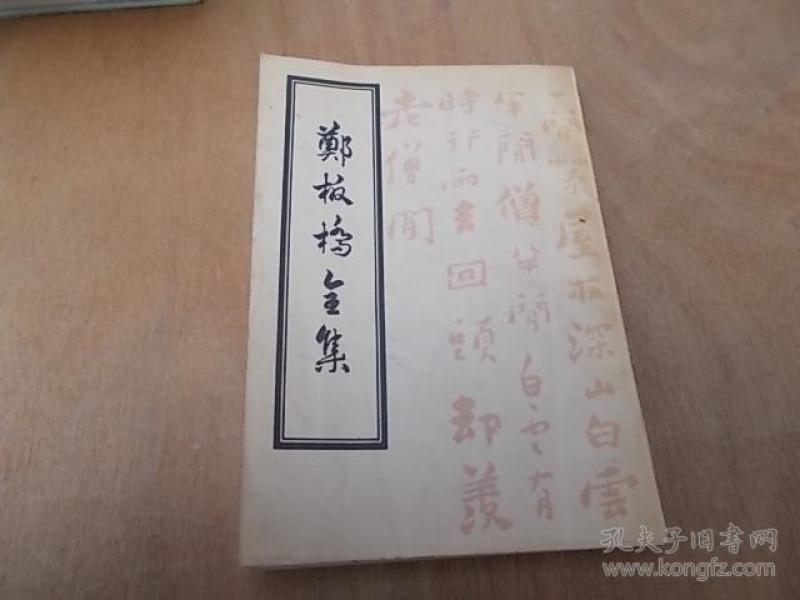 鄭板橋全集
一間茅屋在深山白雲
半間僧半間白雲有
時行雨去回頭却羨
老僧閒
孔夫子旧书网
www.kongfz.com